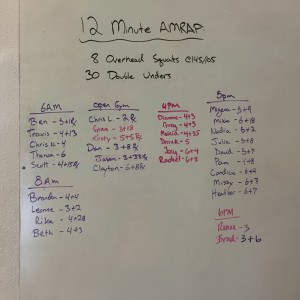 12 Minute AMRAP
8 Overhead Squats @145/105
30 Double Unders
6AM
Ben - 5+18
Travis - 4+13
Chris H - 4
- 6
Scott - 4+15
8AM
Brandon - 4+4
Leanne - 3+2
Rika - 4+28
Beth - 4+3
Open Gym
Chris L. - 2
3+18
5+5
Dan - 3+8
Jason - 3+33
Clayton - 6+8
4PM
4+3
Greg - 4+3
4+35
Derek - 5
Joey - 6+4
Rachel - 6+3
5pm
Megan - 5+9
Mike - 6+18
Nadia - 5+2
Julie - 5+8
David - 5+7
Pam - 4+8
Candice - 6+4
Missy - 6+3
Heather - 6+7
6PM
Renee - 3
Brad - 3+6